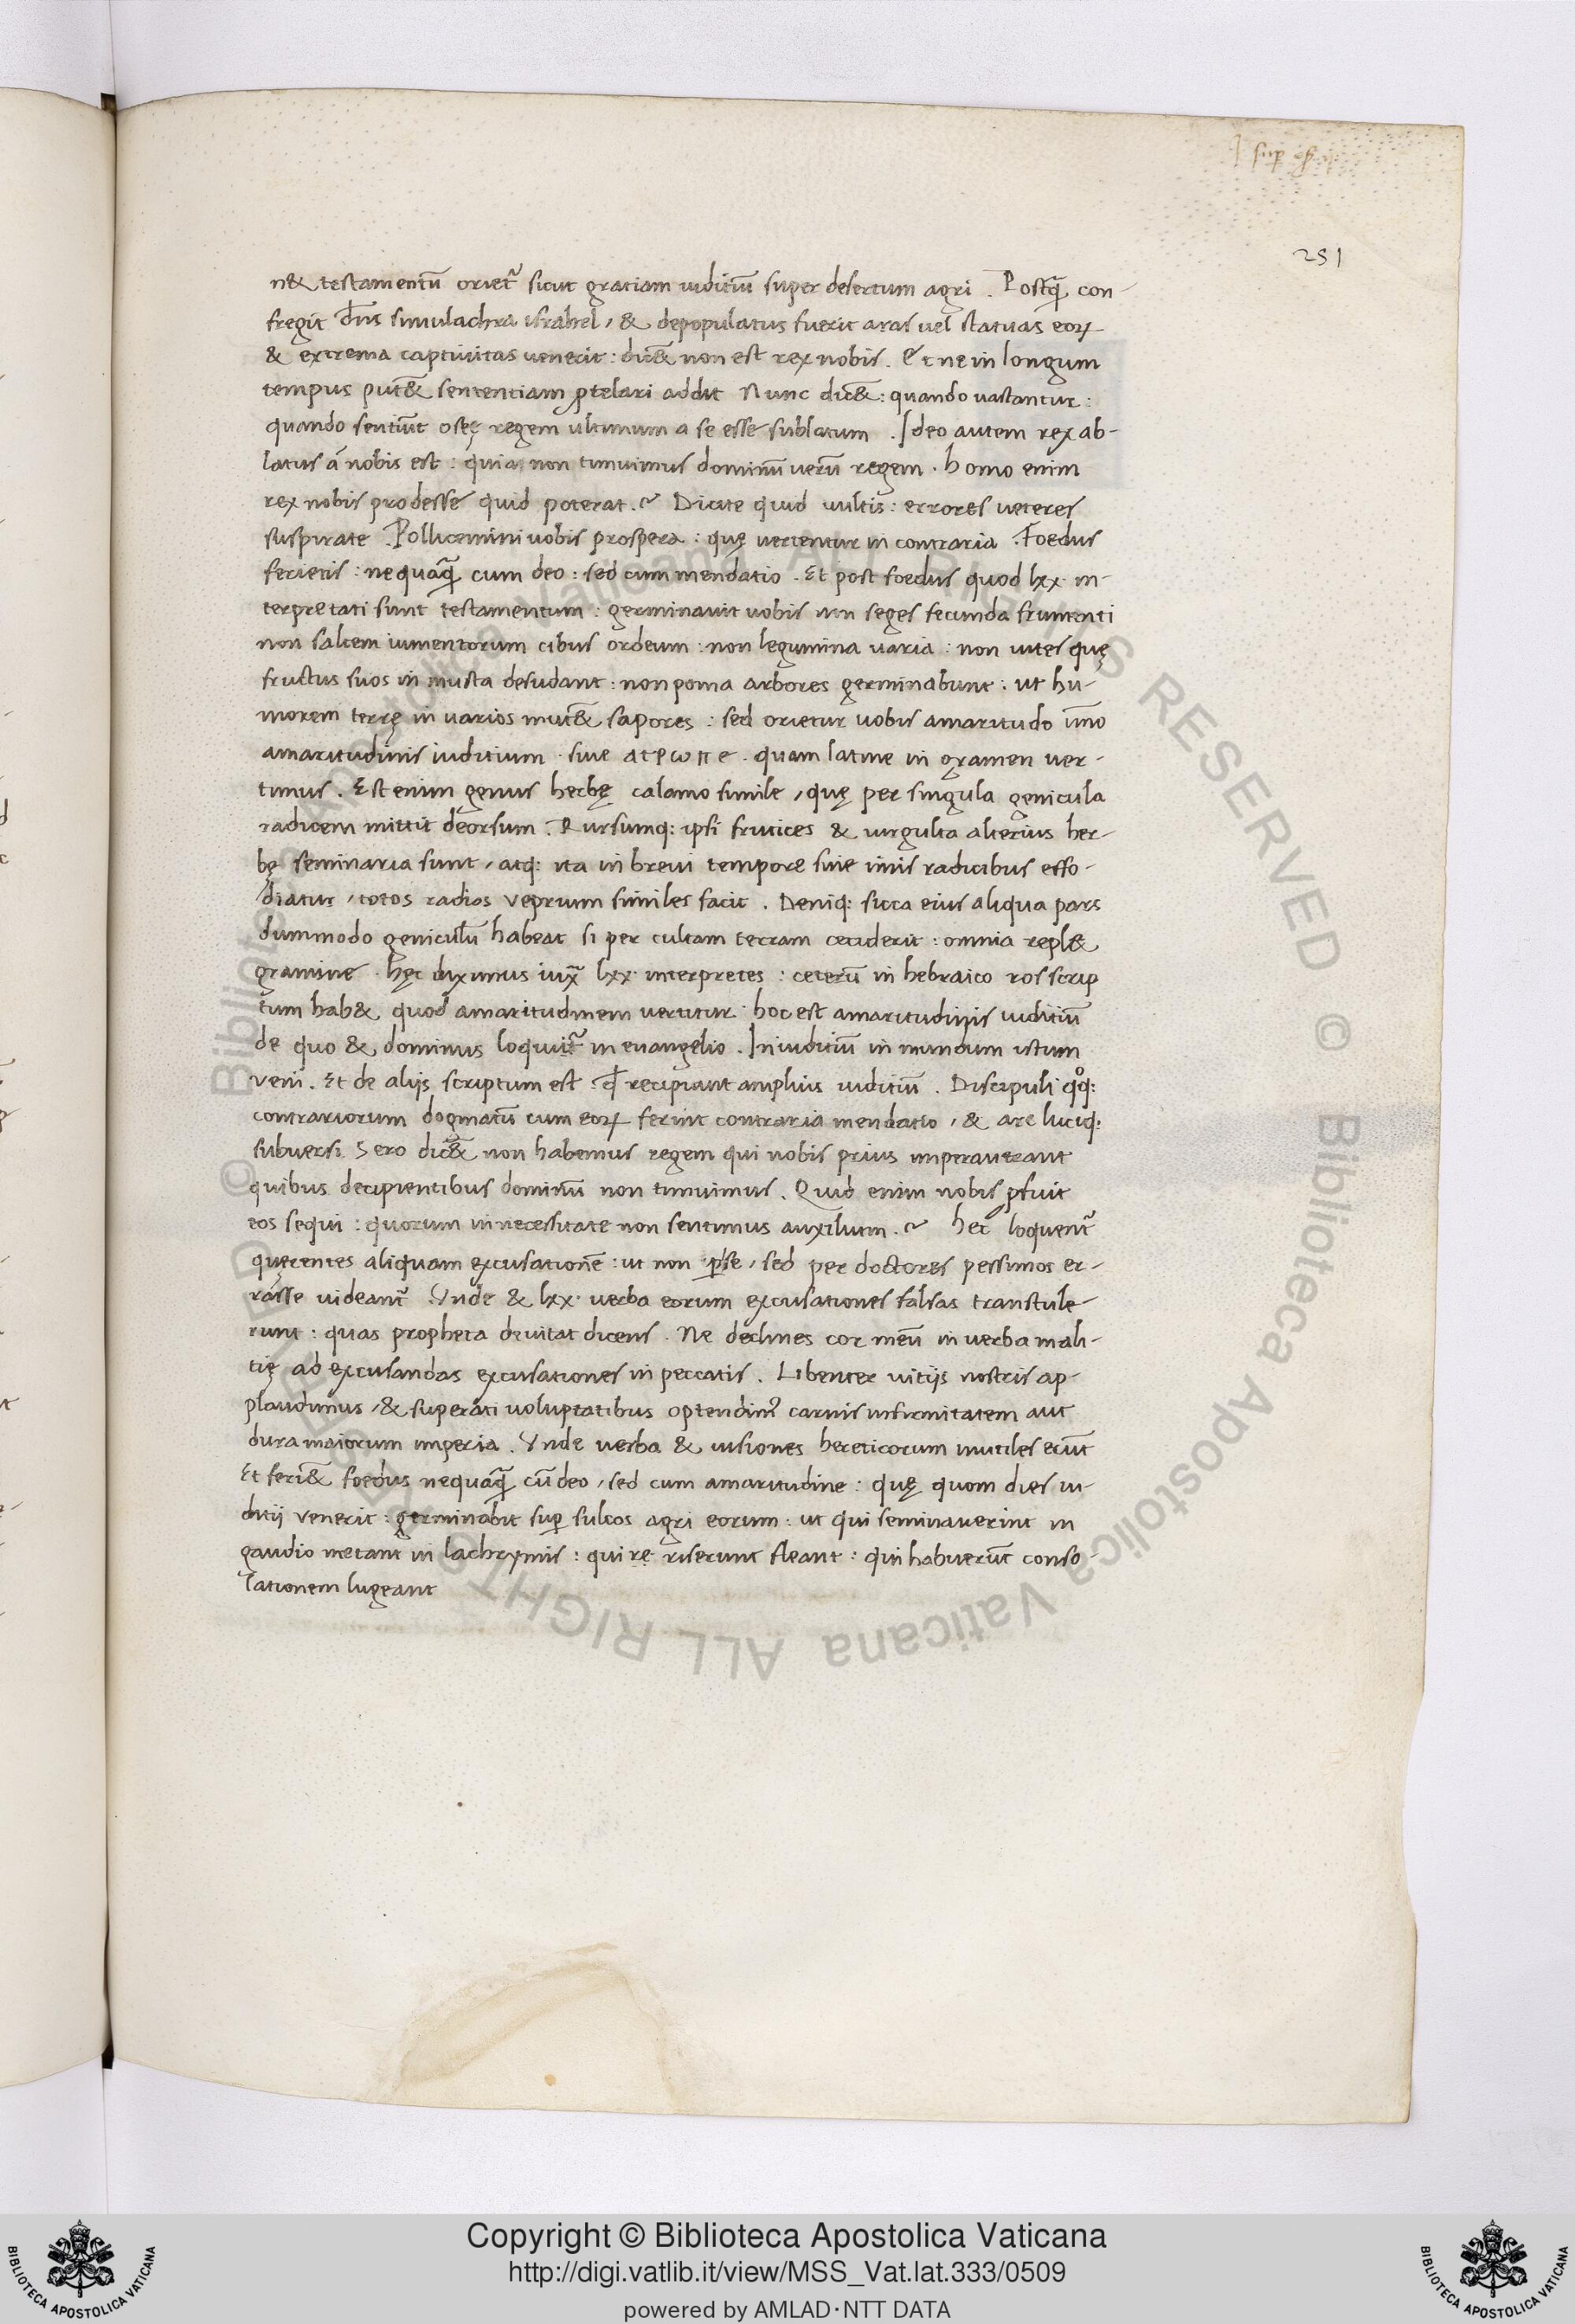 251
n& testamentū orietˀ sicut gratiam iuditiū super desertum agri . Postq̄ con-
fregit dn̄s simulachra israhel, & depopulatus fuerit aras uel statuas eoꝝ
& extrema captiuitas uenerit : dic̄& non est rex nobis . Et ne in longum
tempus put̄& sententiam ꝓtelari addit Nunc dic̄& : quando uastantur :
quando sentiūt oseę regem ultimum a se esse sublatum . Ideo autem rex ab-
latus á nobis est : quia non timuimus dominū uerū regem . homo enim
rex nobis prodesse quid poterat .~ Dicite quid uultis : errores ueteres
suspirate . Pollicemini uobis prospera : quę uertentur in contraria . Foedus
ferietis : nequāq̄ cum deo : sed cum mendatio . Et post foedus quod lxx in-
terpretati sunt testamentum : germinauit uobis non seges fecunda frumenti
non saltem iumentorum cibus ordeum : non legumina uaria : non uites quę
fructus suos in musta desudant : non poma arbores germinabunt : ut hu-
morem terrę in uarios mut̄& sapores : sed orietur uobis amaritudo īmo
amaritudinis iuditium . siue ατρωπε . quam latine in gramen uer-
timus . Est enim genus herbę calamo simile , quę per singula genicula
radicem mittit deorsum . Rursumq: ipsi frutices & uirgulta alterius her-
bę seminaria sunt , atq: ita in breui tempore siue imis radicibus effo-
diatur , totos radios veprium similes facit . Deniq: sicca eius aliqua pars
dummodo geniculū habeat si per cultam terram ceciderit : omnia repl&
gramine . hęc diximus iux̄ lxx interpretes : ceterū in hebraico ros scrip
tum hab& quod amaritudinem uertitur . hoc est amaritudinis iuditiū
de quo & dominus loquitˀ in euangelio . In iuditiū in mundum istum
veni . Et de alijs scriptum est : q̄ recipiant amplius iuditiū . Discipuli qͦq:
contrariorum dogmatū cum eoꝝ ferint contraria mendatio , & are luciq:
subuersi . Sero dic̄& non habemus regem qui nobis prius imperauerant
quibus decipientibus dominū non timuimus . Quid enim nobis ꝓfuit
eos sequi : quorum in necessitate non sentimus auxilium .~ hec loquentˀ
querentes aliquam excusationē : ut non ꝑ se , sed per doctores pessimos er-
rasse uideantˀ . Vnde & lxx uerba eorum excusationes falsas transtule-
runt : quas propheta deuitat dicens . Ne declines cor meū in uerba mali-
tię ad excusandas excusationes in peccatis . Libenter uitijs nostris ap-
plaudimus , & superati uoluptatibus optendimˀ carnis infirmitatem aut
dura maiorum imperia . Vnde uerba & uisiones hereticorum inutiles erūt
Et feri& foedus nequāq̄ cū deo , sed cum amaritudine : quę quom dies iu-
ditij venerit : germinabit suꝑ sulcos agri eorum : ut qui seminauerint in
gaudio metant in lachrymis : qui rẹ riserunt fleant : qui habuerūt conso-
lationem lugeant
© Biblioteca Apostolica Vaticana ALL RIGHTS RESERVED © Biblioteca Apostolica Vaticana ALL RIGHTS RESERVED
BIBLIOTECA APOSTOLICA VATICANA
Copyright © Biblioteca Apostolica Vaticana
http://digi.vatlib.it/view/MSS_Vat.lat.333/0509
powered by AMLAD·NTT DATA
BIBLIOTECA APOSTOLICA VATICANA